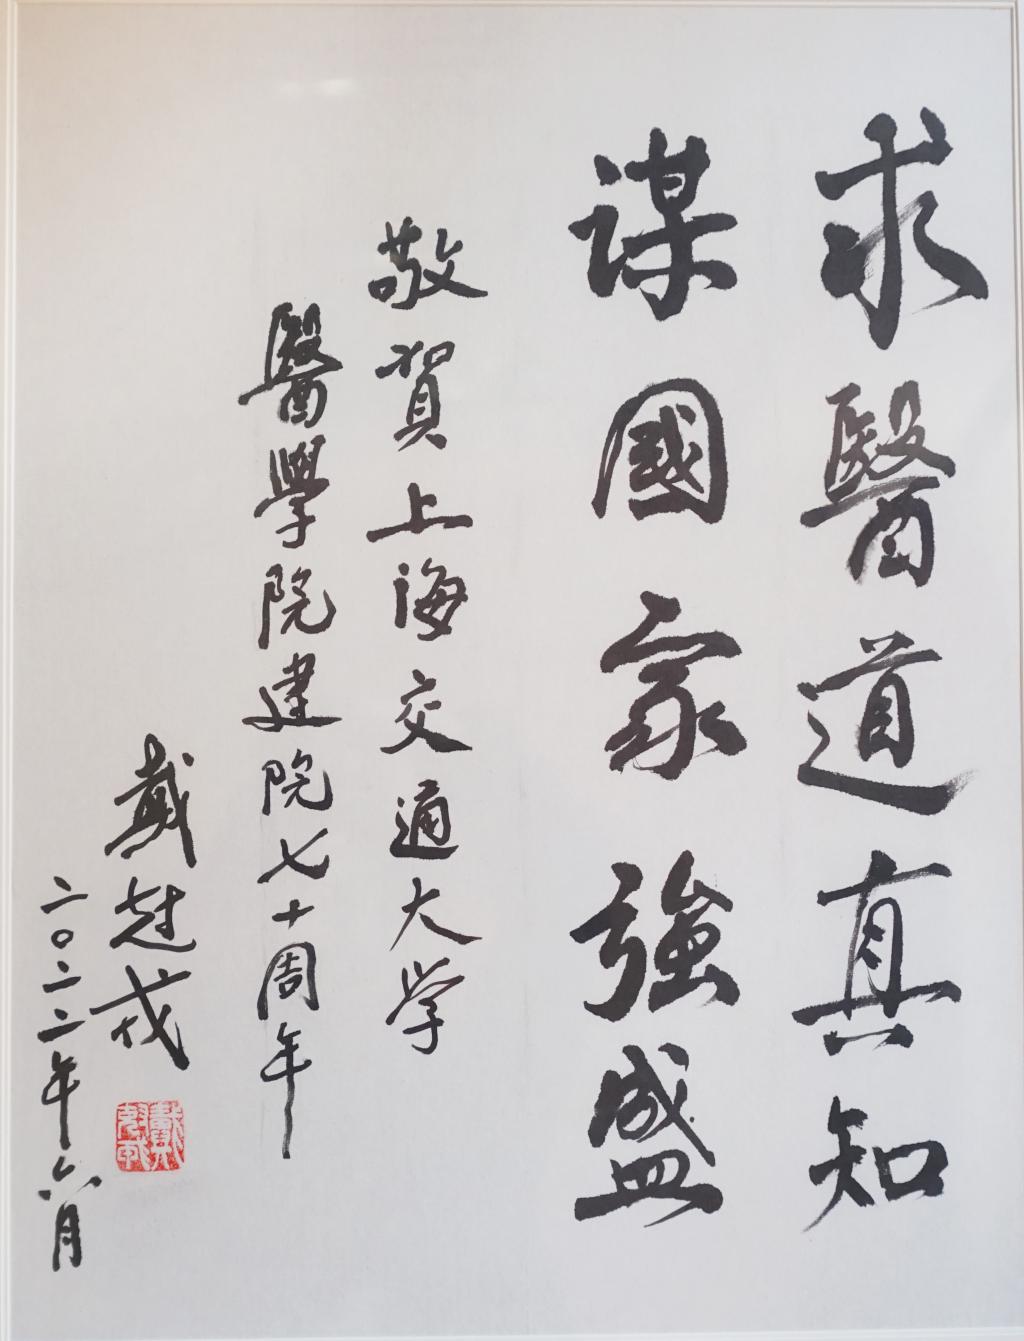 求醫道真知
謀國家強盛
敬賀上海交通大学
醫學院建院七十周年
戴尅戎
二〇二二年六月
戴尅戎